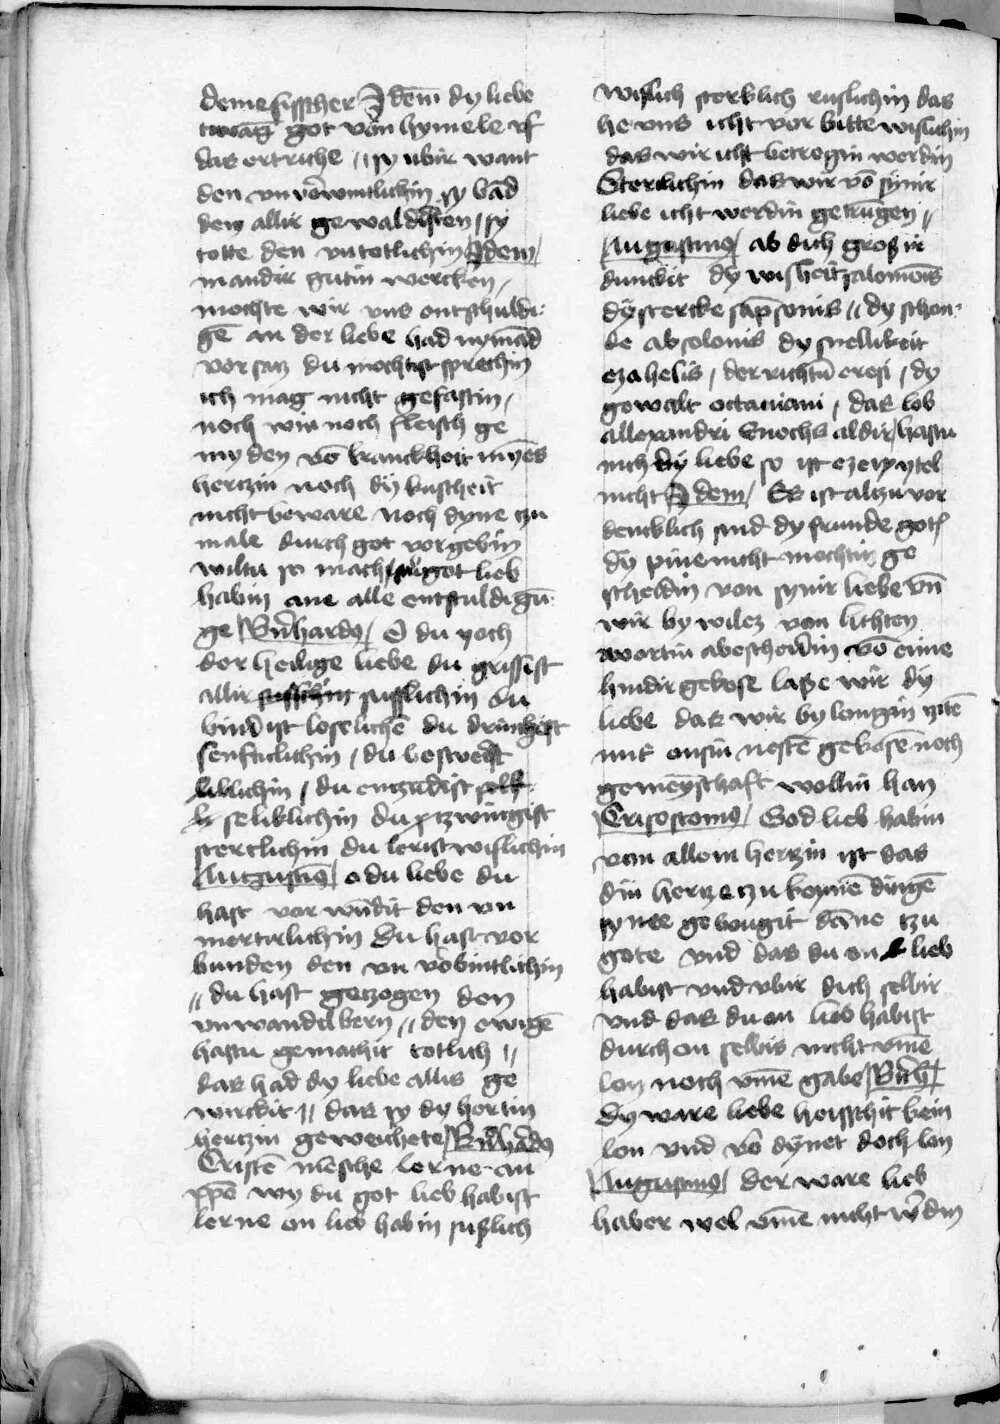 demesisscher Idem dy liebe
twāg got von hymele vf
das ertriche // sy ubir want
den vn vorwintlichin sy bād
den allir gewaldisten / sy
totte den vntotlichin Idem /
mandir gutin wercken /
mochte wir vns entschuldi-
gē an der liebe had nymād
vorsaz du mochtist sprechin
ich mag nicht gefastin /
noch win noch fleisch ge
myden vō kranckheit mȳes
hertzin noch dy kuscheit
nicht beware noch dyne tzu
male durch got vorgebin
wiltu so mach got lieb
habin ane alle entschuldigū-
ge / Bn̄hardꝯ / O du yoch
der heilige liebe du griffist
allir sufflichin du
bindist loselichē du drinchist
senfticlichin / du beswerst
liblichin / du entzūdist
seliklichin du tzwingist
sterclichin du lerist wislichin
/ Augustinꝯ / o du liebe du
hast vor wūdit den vn
mertirlichin Du hast vor
bunden den vn vorbintlichin
// du hast getzogen den
vnwandelbern // den ewigē
hastu gemachit totlich //
das had dy liebe allis ge
wirckit // das sy dy hertin
hertzin geweichete / Bn̄hardꝯ
Cristē mēsche lerne an
xp̄o wy du got lieb habist
lerne en lieb habin suslich
wislich sterklich ruslichin das
he vns icht vor bitte wislichin
das wir icht betrogin werdin
Sterclichin das wir vō sinir
liebe icht werdin getrūgen //
/ Augustinꝯ / ab dich groß ir
dunckit dy wisheit salomōis
dy stercke sāpsonis // dy schon-
de absolonis dy snellikeit
ezahelis / der richtū cresi / dy
gewalt octauiani / das lob
allexandri Enochs aldir / hastu
nich dy liebe so ist ez eyn ytel
nicht Idem / Es ist altzu vor
dencklich sind dy frunde gotꝭ
dy pine nicht mochtin ge
scheidin von synir liebe vn̄
wir by wilez von lichten
wortin abescheidin vō eine
hindir gekose laße wir dy
liebe das wir by langin zitē
mit ensin nestē gekosē noch
gemeynschaft wollin han
/ Crisostomꝯ / God lieb habin
von allem hertzin ist das
din hertze tzu keynē dingē
sy mee gebougit dāne tzu
gote vnd das du en lieb
habist vnd vbir dich selbir
vnd das du en lieb habist
durch en selbis nicht vm̄e
lon noch vm̄e gabe / Bn̄h /
Dy ware liebe heisschit kein
lon vnd vō dynet doch lon
/ Augustinꝯ / der ware lieb
haber wel vm̄e nicht w̄din